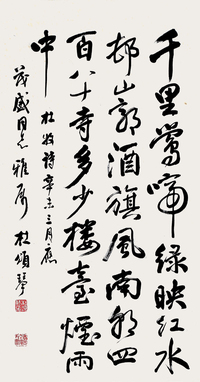 千里莺啼绿映红水
邨山郭酒旗风南朝四
百八十寺多少楼臺煙雨
中
杜牧诗辛未三月应
茂盛同志雅属
杜颂琴